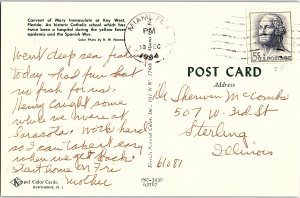 Convent of Mary Immaculate at Key West,
Florida. An historic Catholic school which has
twice been a hospital during the yellow fever
epidemics and the Spanish War.
Color Photo by H. W. Hannau
MIAMI, FL
PM
10 DEC
5¢ U.S. POSTAGE
POST CARD
Address
Went deep sea fishing
today - had fun but
no fish for us.
Henry caught some
while we were at
Sarasota. Work hard
so I can take it easy
when we get back.
Start home on Fri
Mother
Mr Sherwin McCombs
507 W. 3rd St
Sterling
Illinois
61081
Koppel Color Cards
HAWTHORNE, N. J.